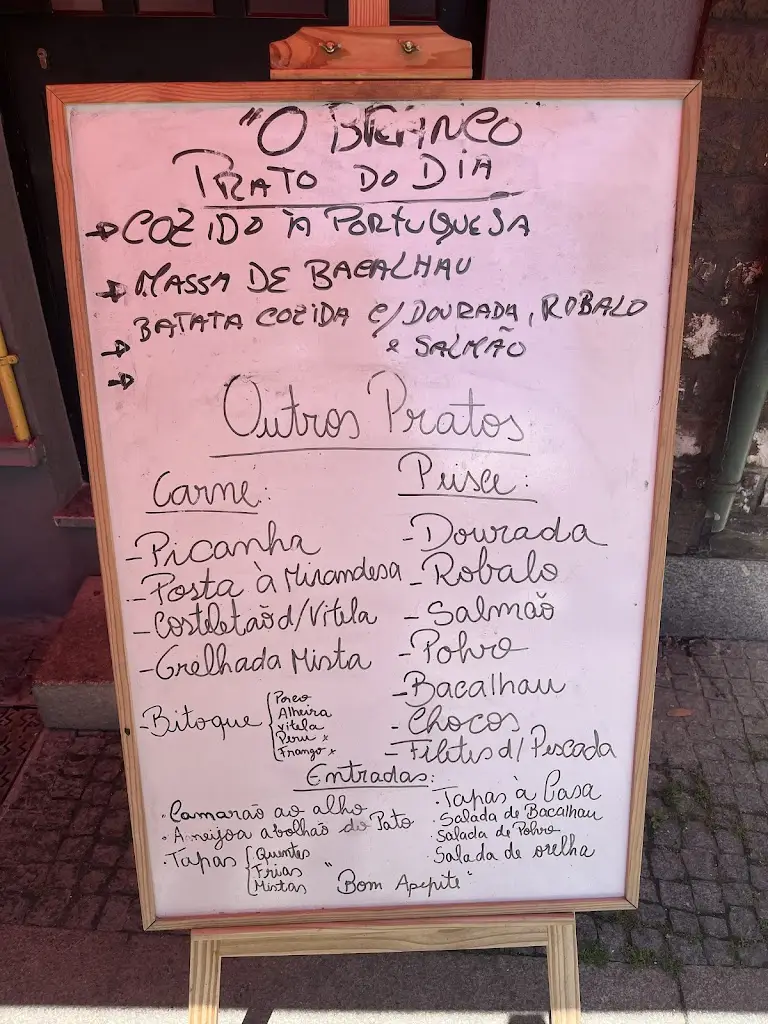 "O BRANCO"
PRATO DO DIA
→ COZIDO À PORTUGUESA
→ MASSA DE BACALHAU
→ BATATA COZIDA C/ DOURADA, ROBALO
e SALMÃO
→
Outros Pratos
Carne:
- Picanha
- Posta à Mirandesa
- Costeletão d/ Vitela
- Grelhada Mista
- Bitoque { Porco
Alheira
Vitela
Peru x
Frango x
Peisce:
- Dourada
- Robalo
- Salmão
- Polvo
- Bacalhau
- Chocos
- Filetes d/ Pescada
Entradas:
· Camarão ao alho
· Ameijoa a bolhão do Pato
· Tapas { Quentes
Frias
Mistas
· Tapas à Casa
· Salada de Bacalhau
· Salada de Polvo
Salada de orelha
"Bom Apepite"